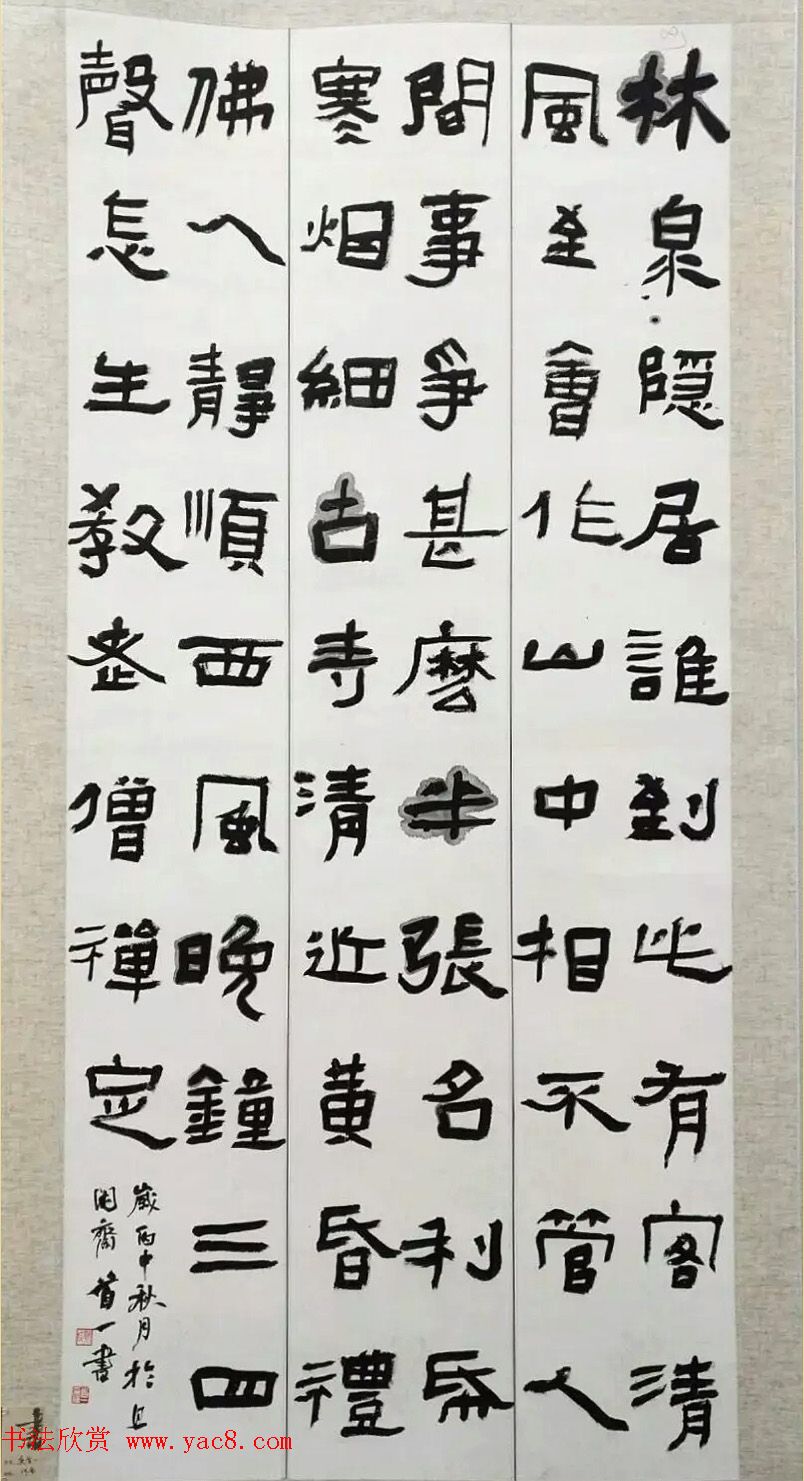 林泉隱居誰到此有客清
風至會作山中相不管人
間事爭甚麼半張名利帋
寒烟細古寺清近黄昏禮
佛人靜順西風晚鐘三四
聲怎生教老僧禪定
歲丙申秋月於且
閑齋 一書
书法欣赏 www.yac8.com